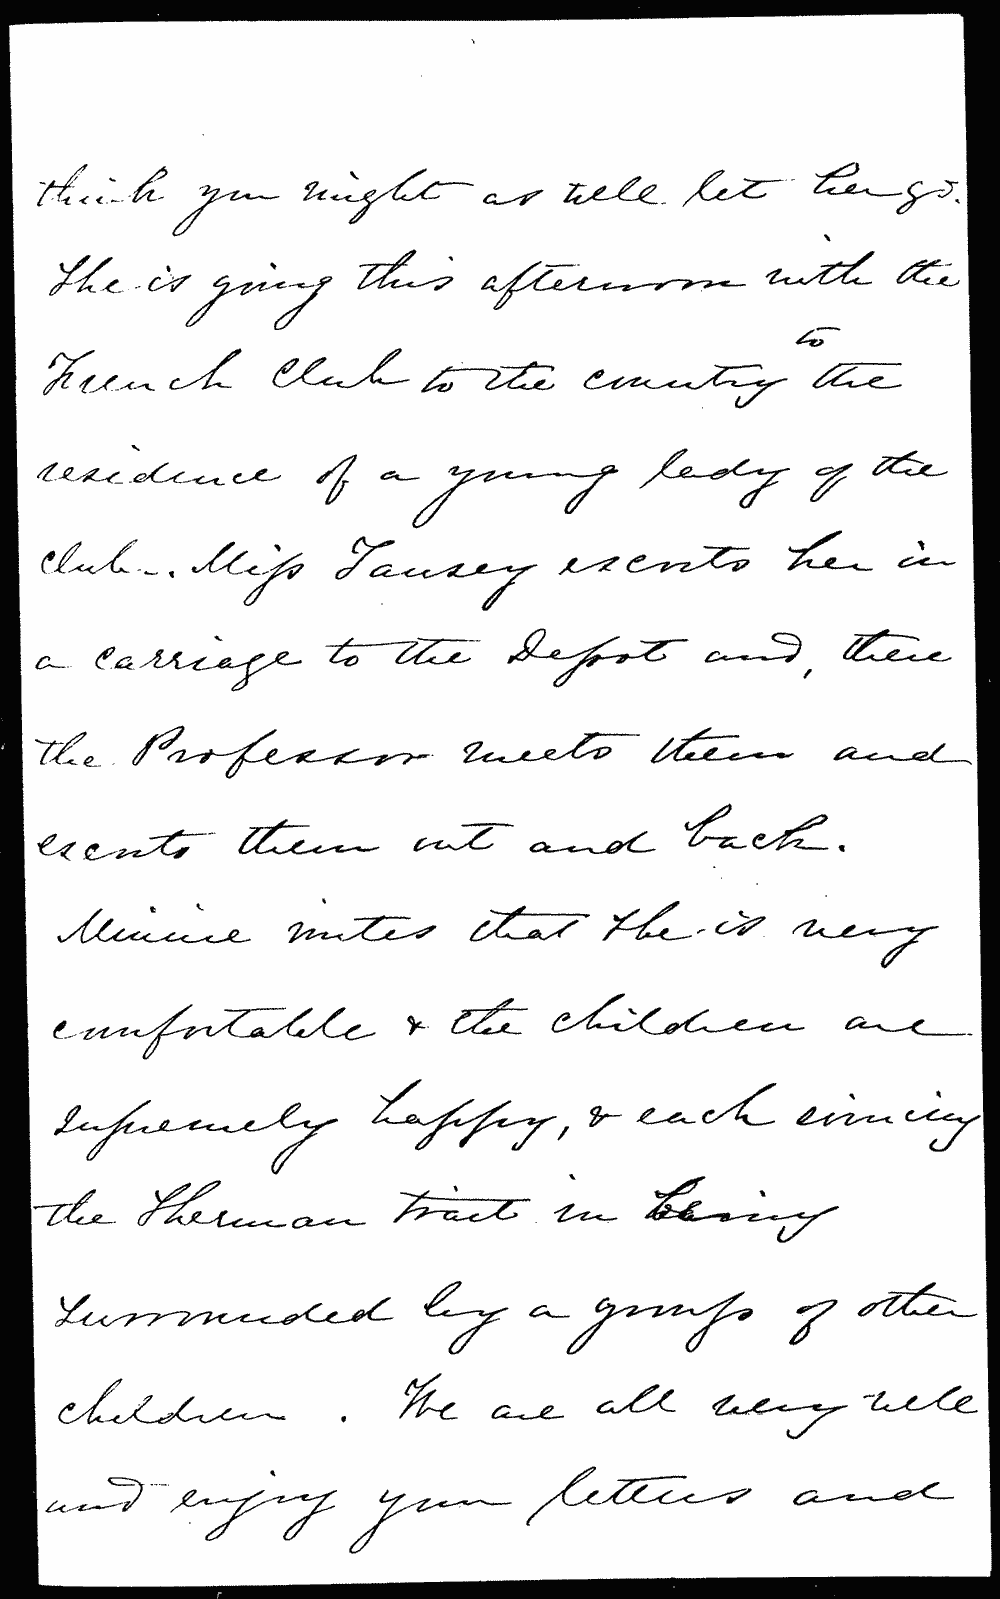 think you might as well let her go.
She is going this afternoon with the
to
French Club to the country the
residence of a young lady of the
club. Miss Tausey escorts her in
a carriage to the Depot and, there
the Professor meets them and
escorts them out and back.
Minnie writes that she is very
comfortable & the children are
supremely happy, & each evincing
the Sherman trait in being
surrounded by a group of other
children . We are all very well
and enjoy your letters and